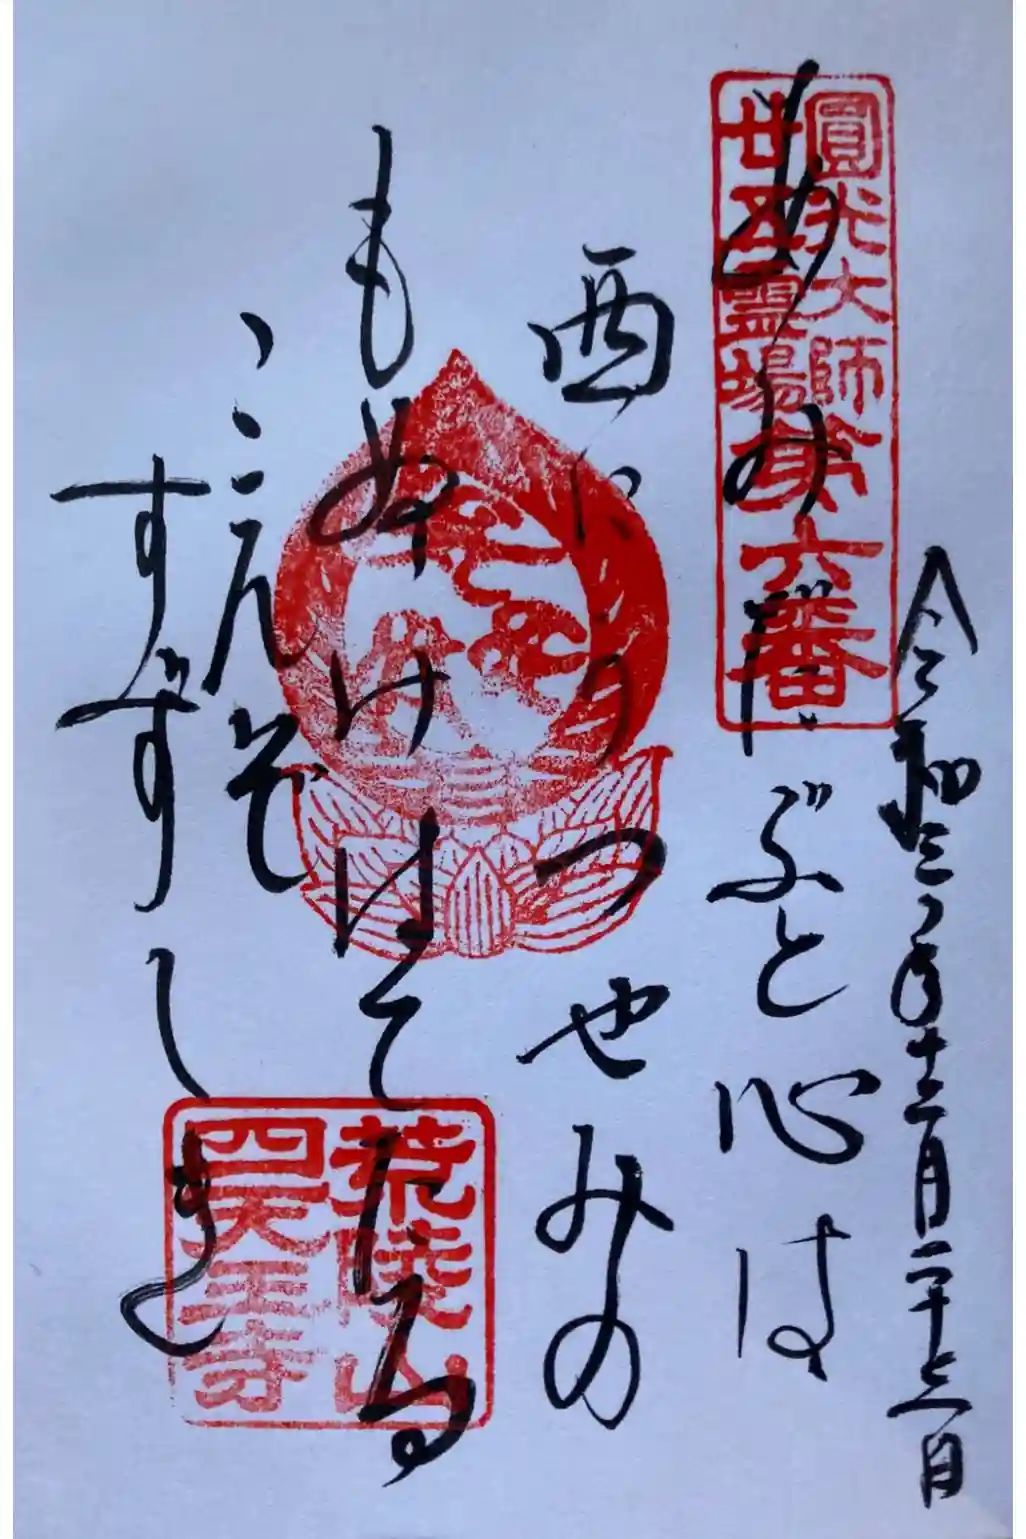 令和三年十二月二十二日
圓光大師
廿五霊場第六番
あみだぶと心は
西にうつせみの
もぬけはてたる
こえぞ
すゞしき
荒陵山
四天王寺